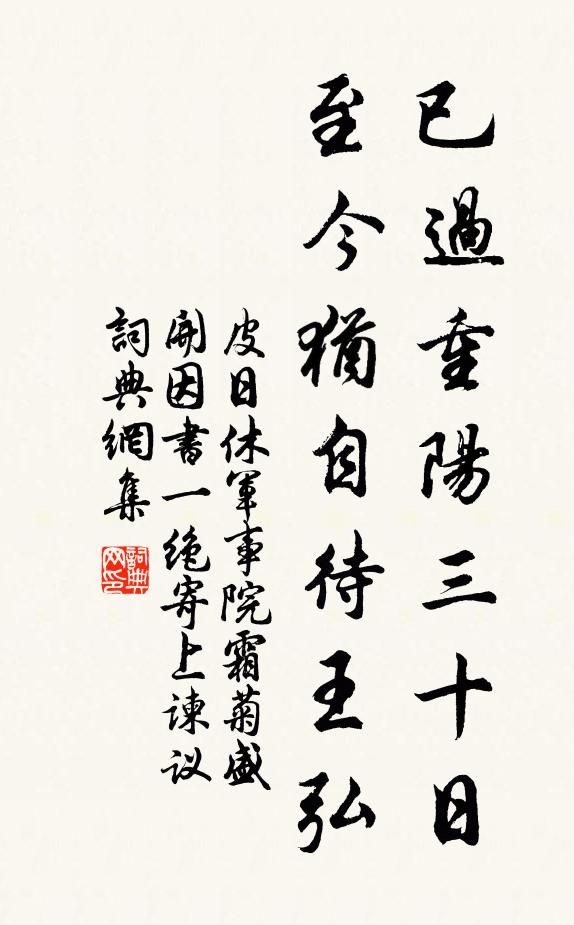 已過重陽三十日
至今猶自待王弘
皮日休軍事院霜菊盛
開因書一絶寄上諫议
詞典網集
詞典网印